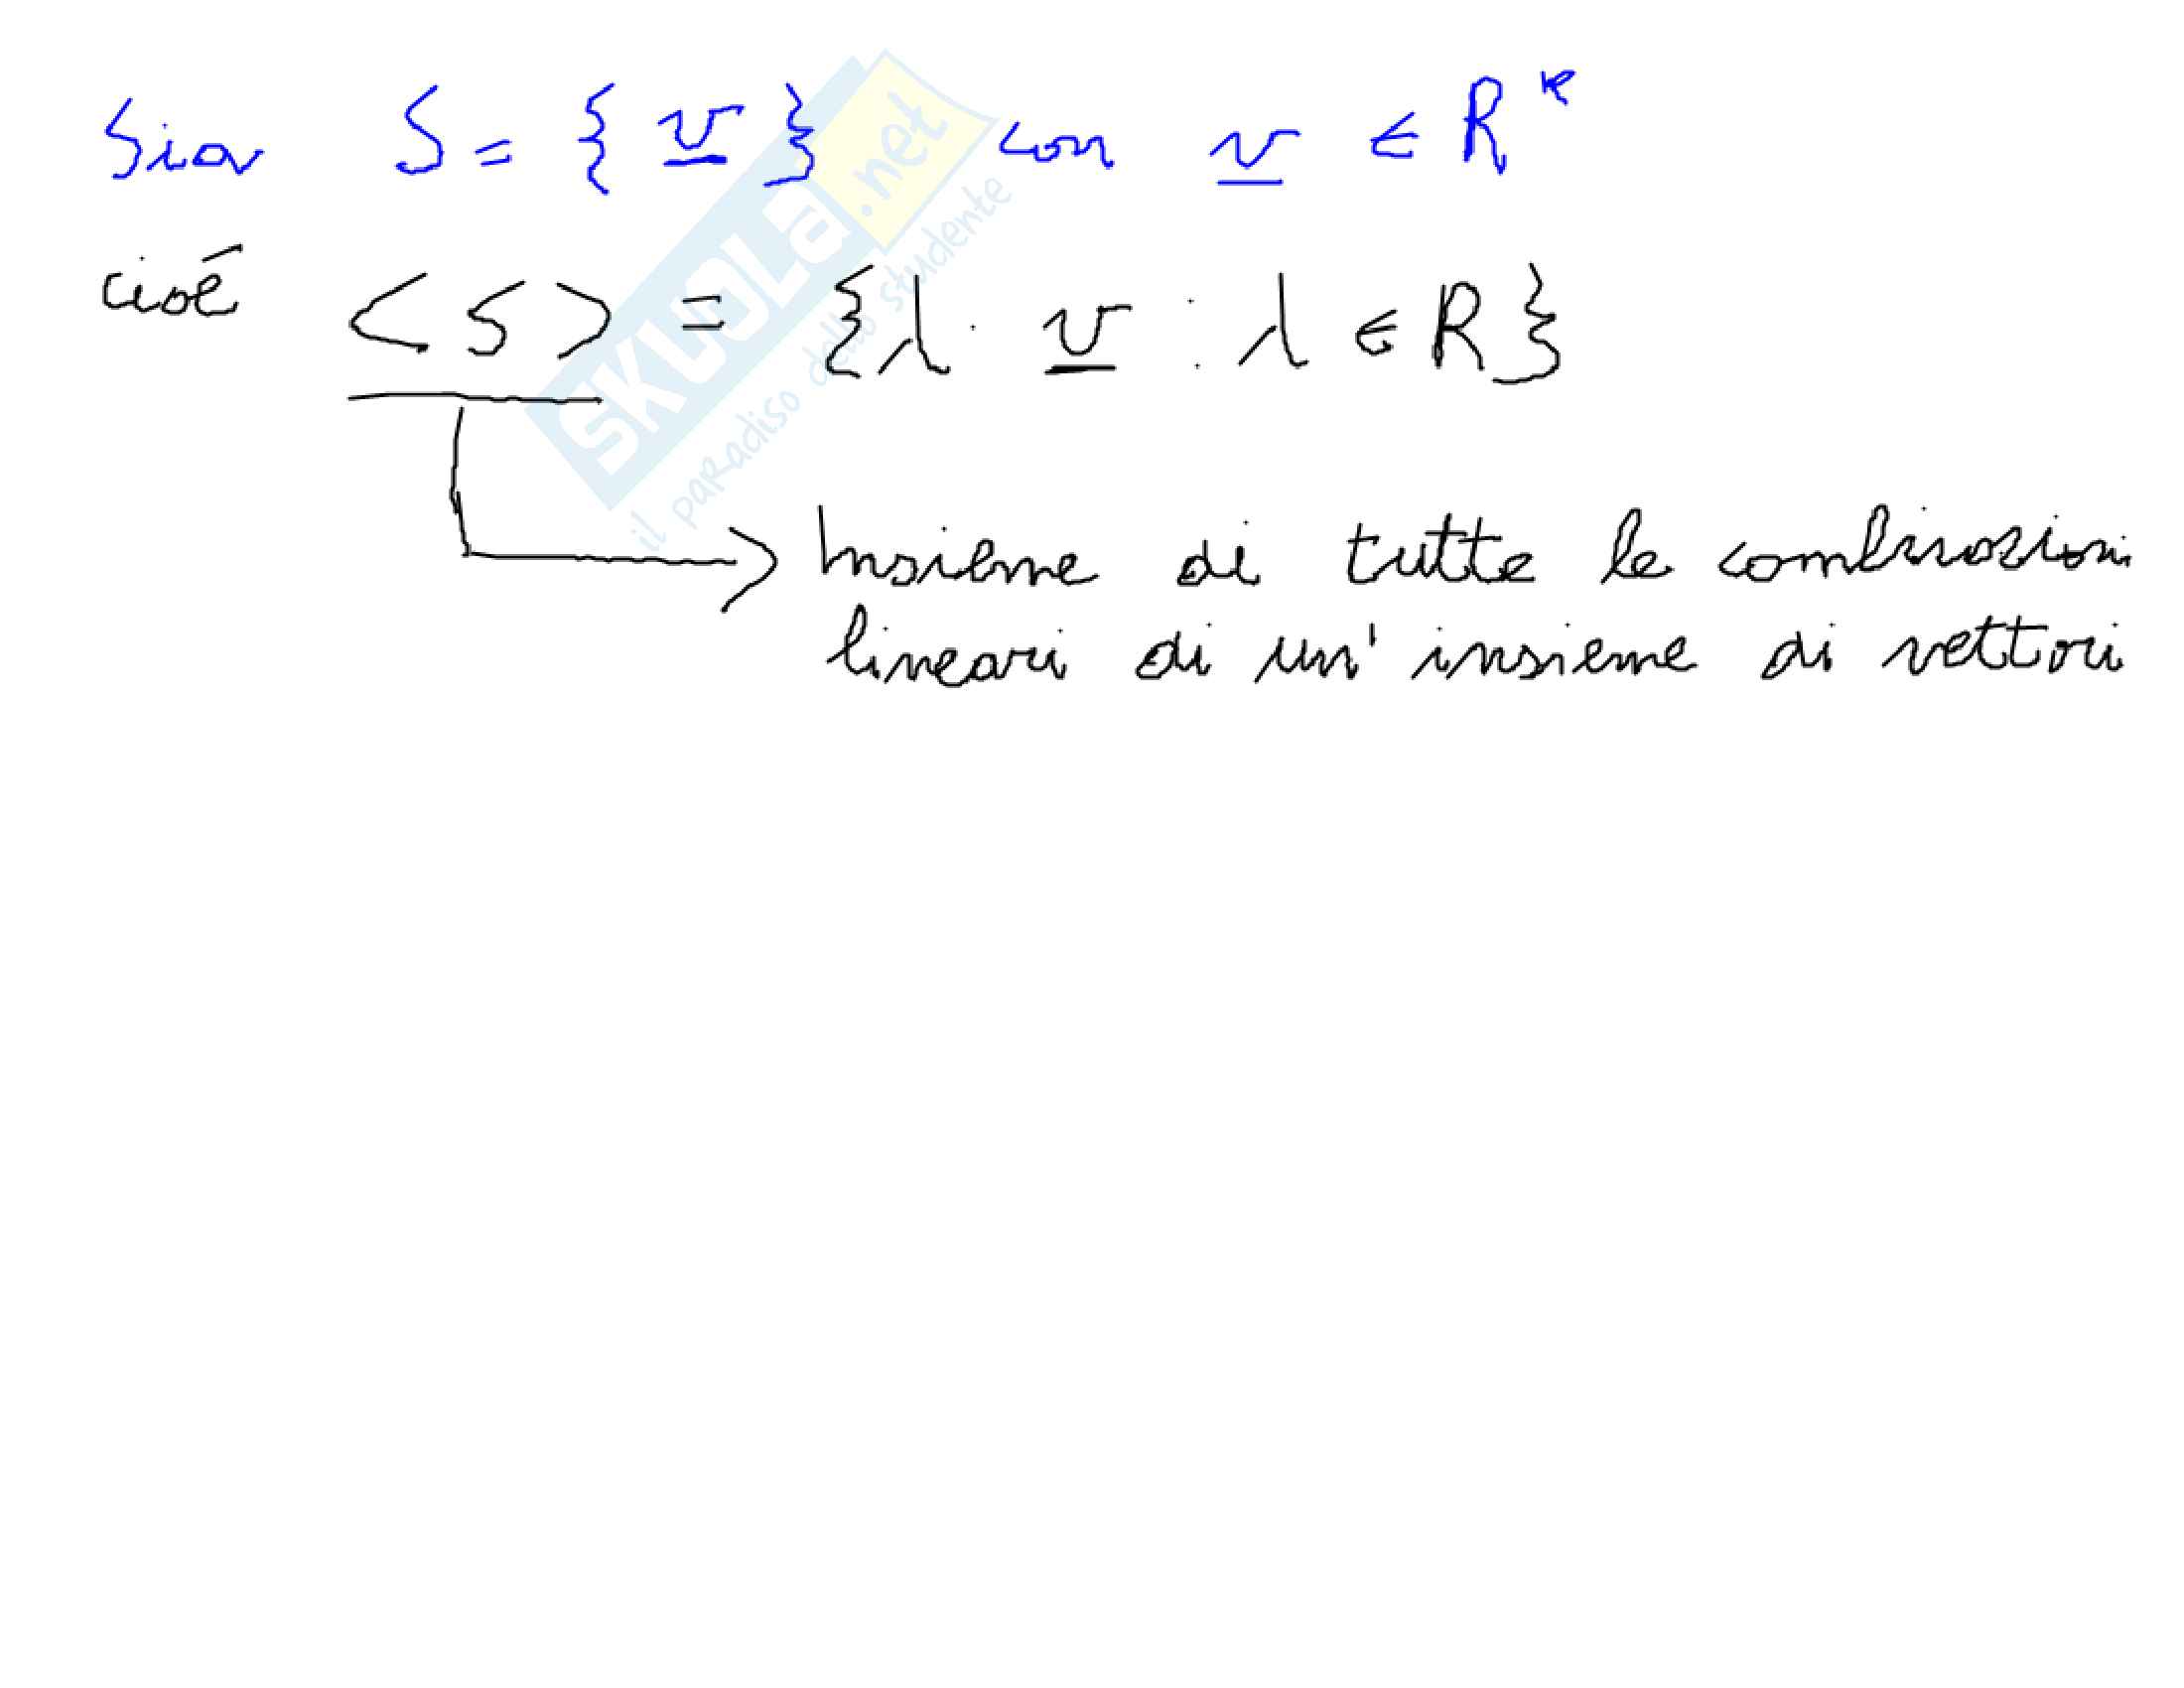 Sia S = { v } con v ∈ R^k
cioé <S> = { λ · v : λ ∈ R }
Insieme di tutte le combinazioni
lineari di un' insieme di vettori
SKUOLa.net
il paRadiso dello studente